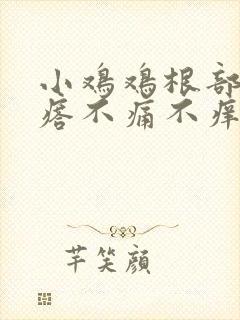 小鸡鸡根部
痞不痛不痒
芊笑顔